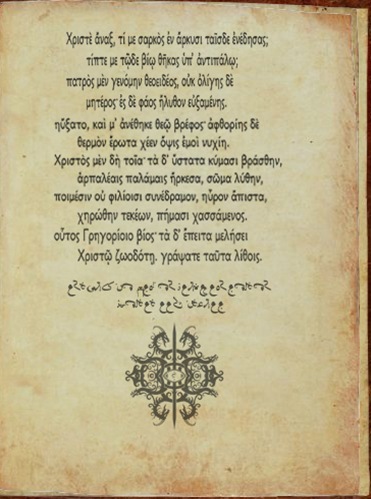 Χριστὲ ἄναξ, τί με σαρκὸς ἐν ἄρκυσι ταῖσδε ἐνέδησας;
τίπτε με τῷδε βίῳ θῆκας ὑπ' ἀντιπάλῳ;
πατρὸς μὲν γενόμην θεοειδέος, οὐκ ὀλίγης δὲ
μητέρος· ἐς δὲ φάος ἤλυθον εὐξαμένης.
ηὔξατο, καί μ' ἀνέθηκε θεῷ βρέφος· ἀφθορίης δὲ
θερμὸν ἔρωτα χέεν ὄψις ἐμοὶ νυχίη.
Χριστὸς μὲν δὴ τοῖα· τὰ δ' ὕστατα κύμασι βράσθην,
ἁρπαλέαις παλάμαις ἤρκεσα, σῶμα λύθην,
ποιμέσιν οὐ φιλίοισι συνέδραμον, ηὗρον ἄπιστα,
χηρώθην τεκέων, πήμασι χασσάμενος.
οὗτος Γρηγορίοιο βίος· τὰ δ' ἔπειτα μελήσει
Χριστῷ ζωοδότῃ. γράψατε ταῦτα λίθοις.